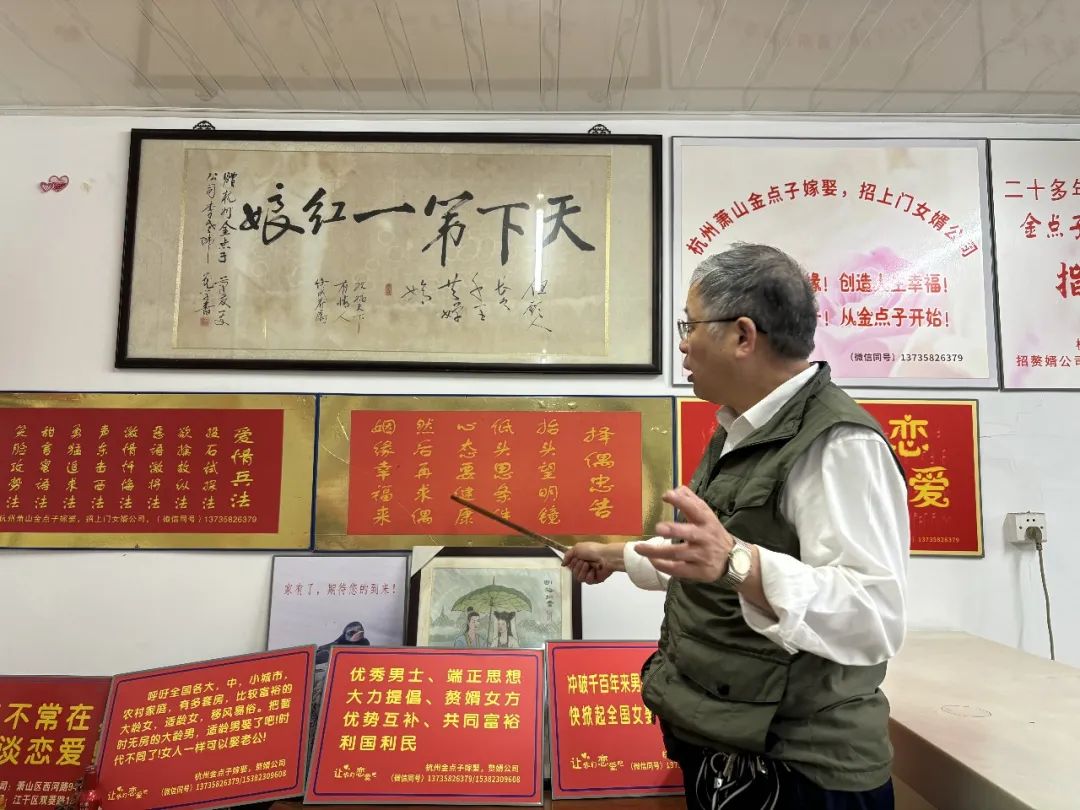 天下第一红娘
赠杭州金点子
但愿人
长久
千里
共婵
娟
杭州萧山金点子嫁娶，招上门女婿公司
缘！创造人生幸福！
！从金点子开始！
（微信同号）13735826379
二十多年
金点子
指
招赘婿公司
爱情兵法
投石试探法
欲擒故纵法
恶语激将法
激情忏悔法
声东击西法
勇猛追求法
甜言蜜语法
笑脸攻势法
杭州萧山金点子嫁娶，招上门女婿公司，（微信同号）13735826379
择偶忠告
抬头望明镜
低头思条件
心态要健康
然后再求偶
姻缘幸福来
恋
爱
13735826379
家有了，期待您的到来！
不常在
谈恋爱
司：萧山区西河路9
江干区双菱路1
呼吁全国各大，中，小城市，
农村家庭，有多套房，比较富裕的
大龄女，适龄女，移风易俗。把暂
时无房的大龄男，适龄男娶了吧！时
代不同了！女人一样可以娶老公！
杭州金点子嫁娶，赘婿公司
让你们恋爱吧
（微信同号）13735826379/15382309608
优秀男士、端正思想
大力提倡、赘婿女方
优势互补、共同富裕
利国利民
杭州金点子嫁娶，赘婿公司
让你们恋爱吧
（微信同号）13735826379/15382309608
冲破千百年来男
快掀起全国女
杭州金点子嫁娶
让你们恋爱吧
（微信同号）13735